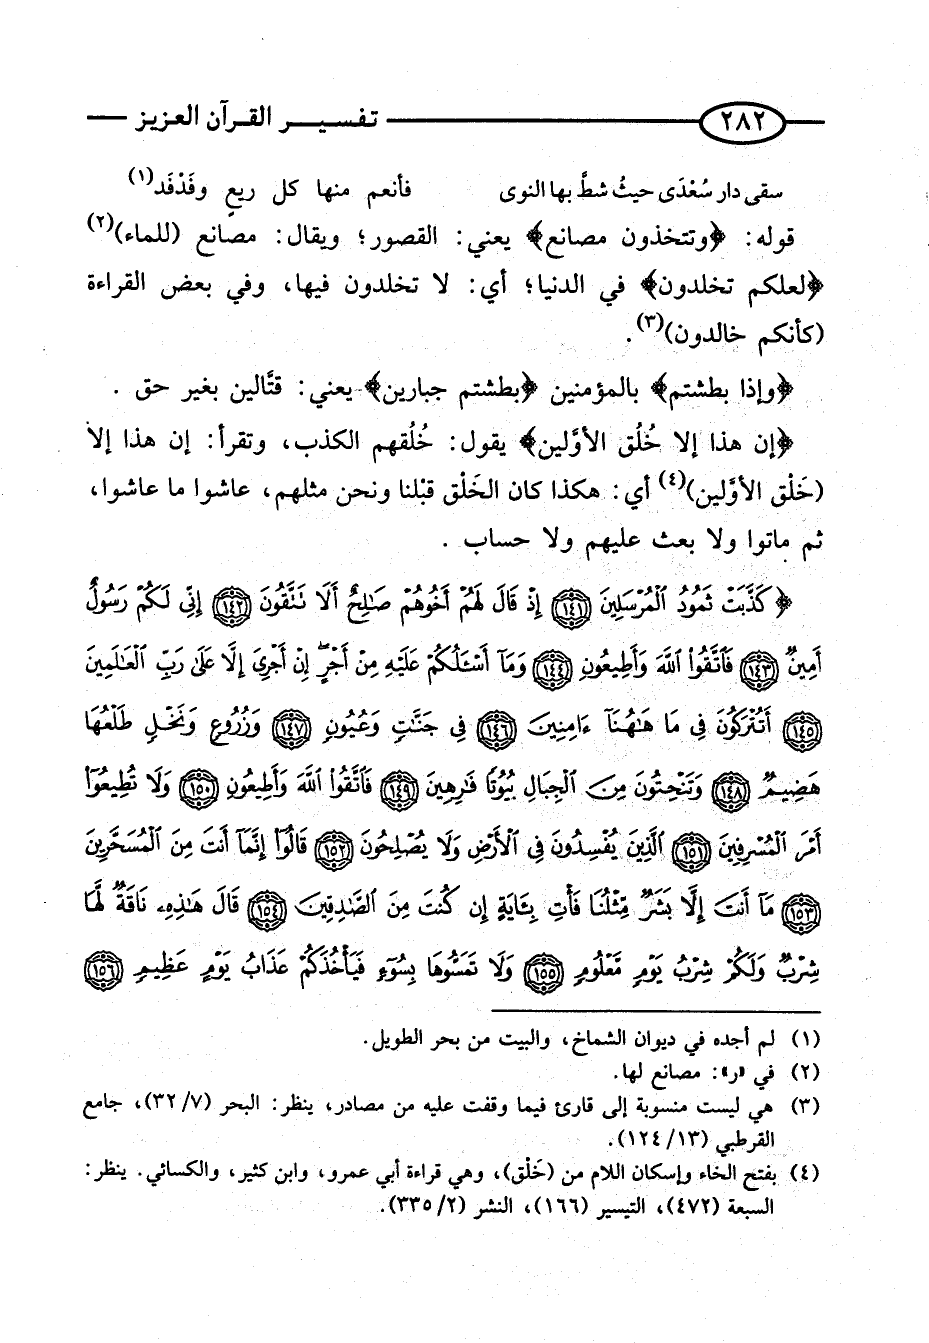 ٢٨٢ تفسير القرآن العزيز
سقى دار سُعْدَى حيثُ شطَّ بها النوى فأنعم منها كل ريعٍ وفَدْفَد(١)
قوله: ﴿وتتخذون مصانع﴾ يعني: القصور؛ ويقال: مصانع (للماء)(٢)
﴿لعلكم تخلدون﴾ في الدنيا؛ أي: لا تخلدون فيها، وفي بعض القراءة
(كأنكم خالدون)(٣).
﴿وإذا بطشتم﴾ بالمؤمنين ﴿بطشتم جبارين﴾ يعني: قتَّالين بغير حق .
﴿إن هذا إلا خُلُق الأوَّلين﴾ يقول: خُلُقهم الكذب، وتقرأ: إن هذا إلا
(خَلْق الأوَّلين)(٤) أي: هكذا كان الخَلْق قبْلنا ونحن مثلهم، عاشوا ما عاشوا،
ثم ماتوا ولا بعث عليهم ولا حساب .
﴿كَذَّبَتْ ثَمُودُ الْمُرْسَلِينَ ١٤١ إِذْ قَالَ لَهُمْ أَخُوهُمْ صَالِحٌ أَلَا تَتَّقُونَ ١٤٢ إِنِّي لَكُمْ رَسُولٌ
أَمِينٌ ١٤٣ فَاتَّقُوا اللَّهَ وَأَطِيعُونِ ١٤٤ وَمَا أَسْأَلُكُمْ عَلَيْهِ مِنْ أَجْرٍ إِنْ أَجْرِيَ إِلَّا عَلَى رَبِّ الْعَالَمِينَ
١٤٥ أَتُتْرَكُونَ فِي مَا هَاهُنَا آمِنِينَ ١٤٦ فِي جَنَّاتٍ وَعُيُونٍ ١٤٧ وَزُرُوعٍ وَنَخْلٍ طَلْعُهَا
هَضِيمٌ ١٤٨ وَتَنْحِتُونَ مِنَ الْجِبَالِ بُيُوتًا فَارِهِينَ ١٤٩ فَاتَّقُوا اللَّهَ وَأَطِيعُونِ ١٥٠ وَلَا تُطِيعُوا
أَمْرَ الْمُسْرِفِينَ ١٥١ الَّذِينَ يُفْسِدُونَ فِي الْأَرْضِ وَلَا يُصْلِحُونَ ١٥٢ قَالُوا إِنَّمَا أَنْتَ مِنَ الْمُسَحَّرِينَ
١٥٣ مَا أَنْتَ إِلَّا بَشَرٌ مِثْلُنَا فَأْتِ بِآيَةٍ إِنْ كُنْتَ مِنَ الصَّادِقِينَ ١٥٤ قَالَ هَذِهِ نَاقَةٌ لَهَا
شِرْبٌ وَلَكُمْ شِرْبُ يَوْمٍ مَعْلُومٍ ١٥٥ وَلَا تَمَسُّوهَا بِسُوءٍ فَيَأْخُذَكُمْ عَذَابُ يَوْمٍ عَظِيمٍ ١٥٦
(١) لم أجده في ديوان الشماخ، والبيت من بحر الطويل.
(٢) في «ر»: مصانع لها.
(٣) هي ليست منسوبة إلى قارئ فيما وقفت عليه من مصادر، ينظر: البحر (٣٢/٧)، جامع
القرطبي (١٢٤/١٣).
(٤) بفتح الخاء وإسكان اللام من (خَلْق)، وهي قراءة أبي عمرو، وابن كثير، والكسائي. ينظر:
السبعة (٤٧٢)، التيسير (١٦٦)، النشر (٣٣٥/٢).